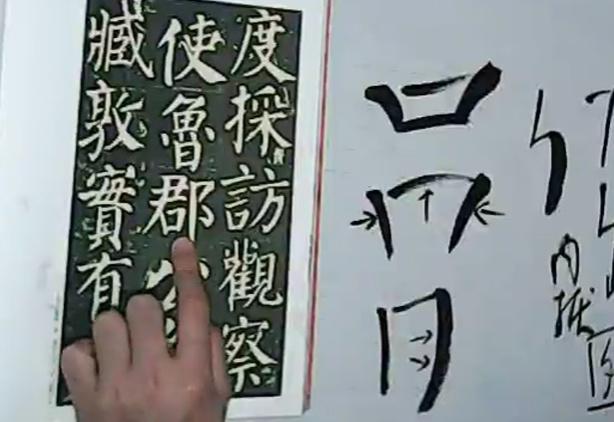 度採訪觀察
使魯郡
臧敦實有
内